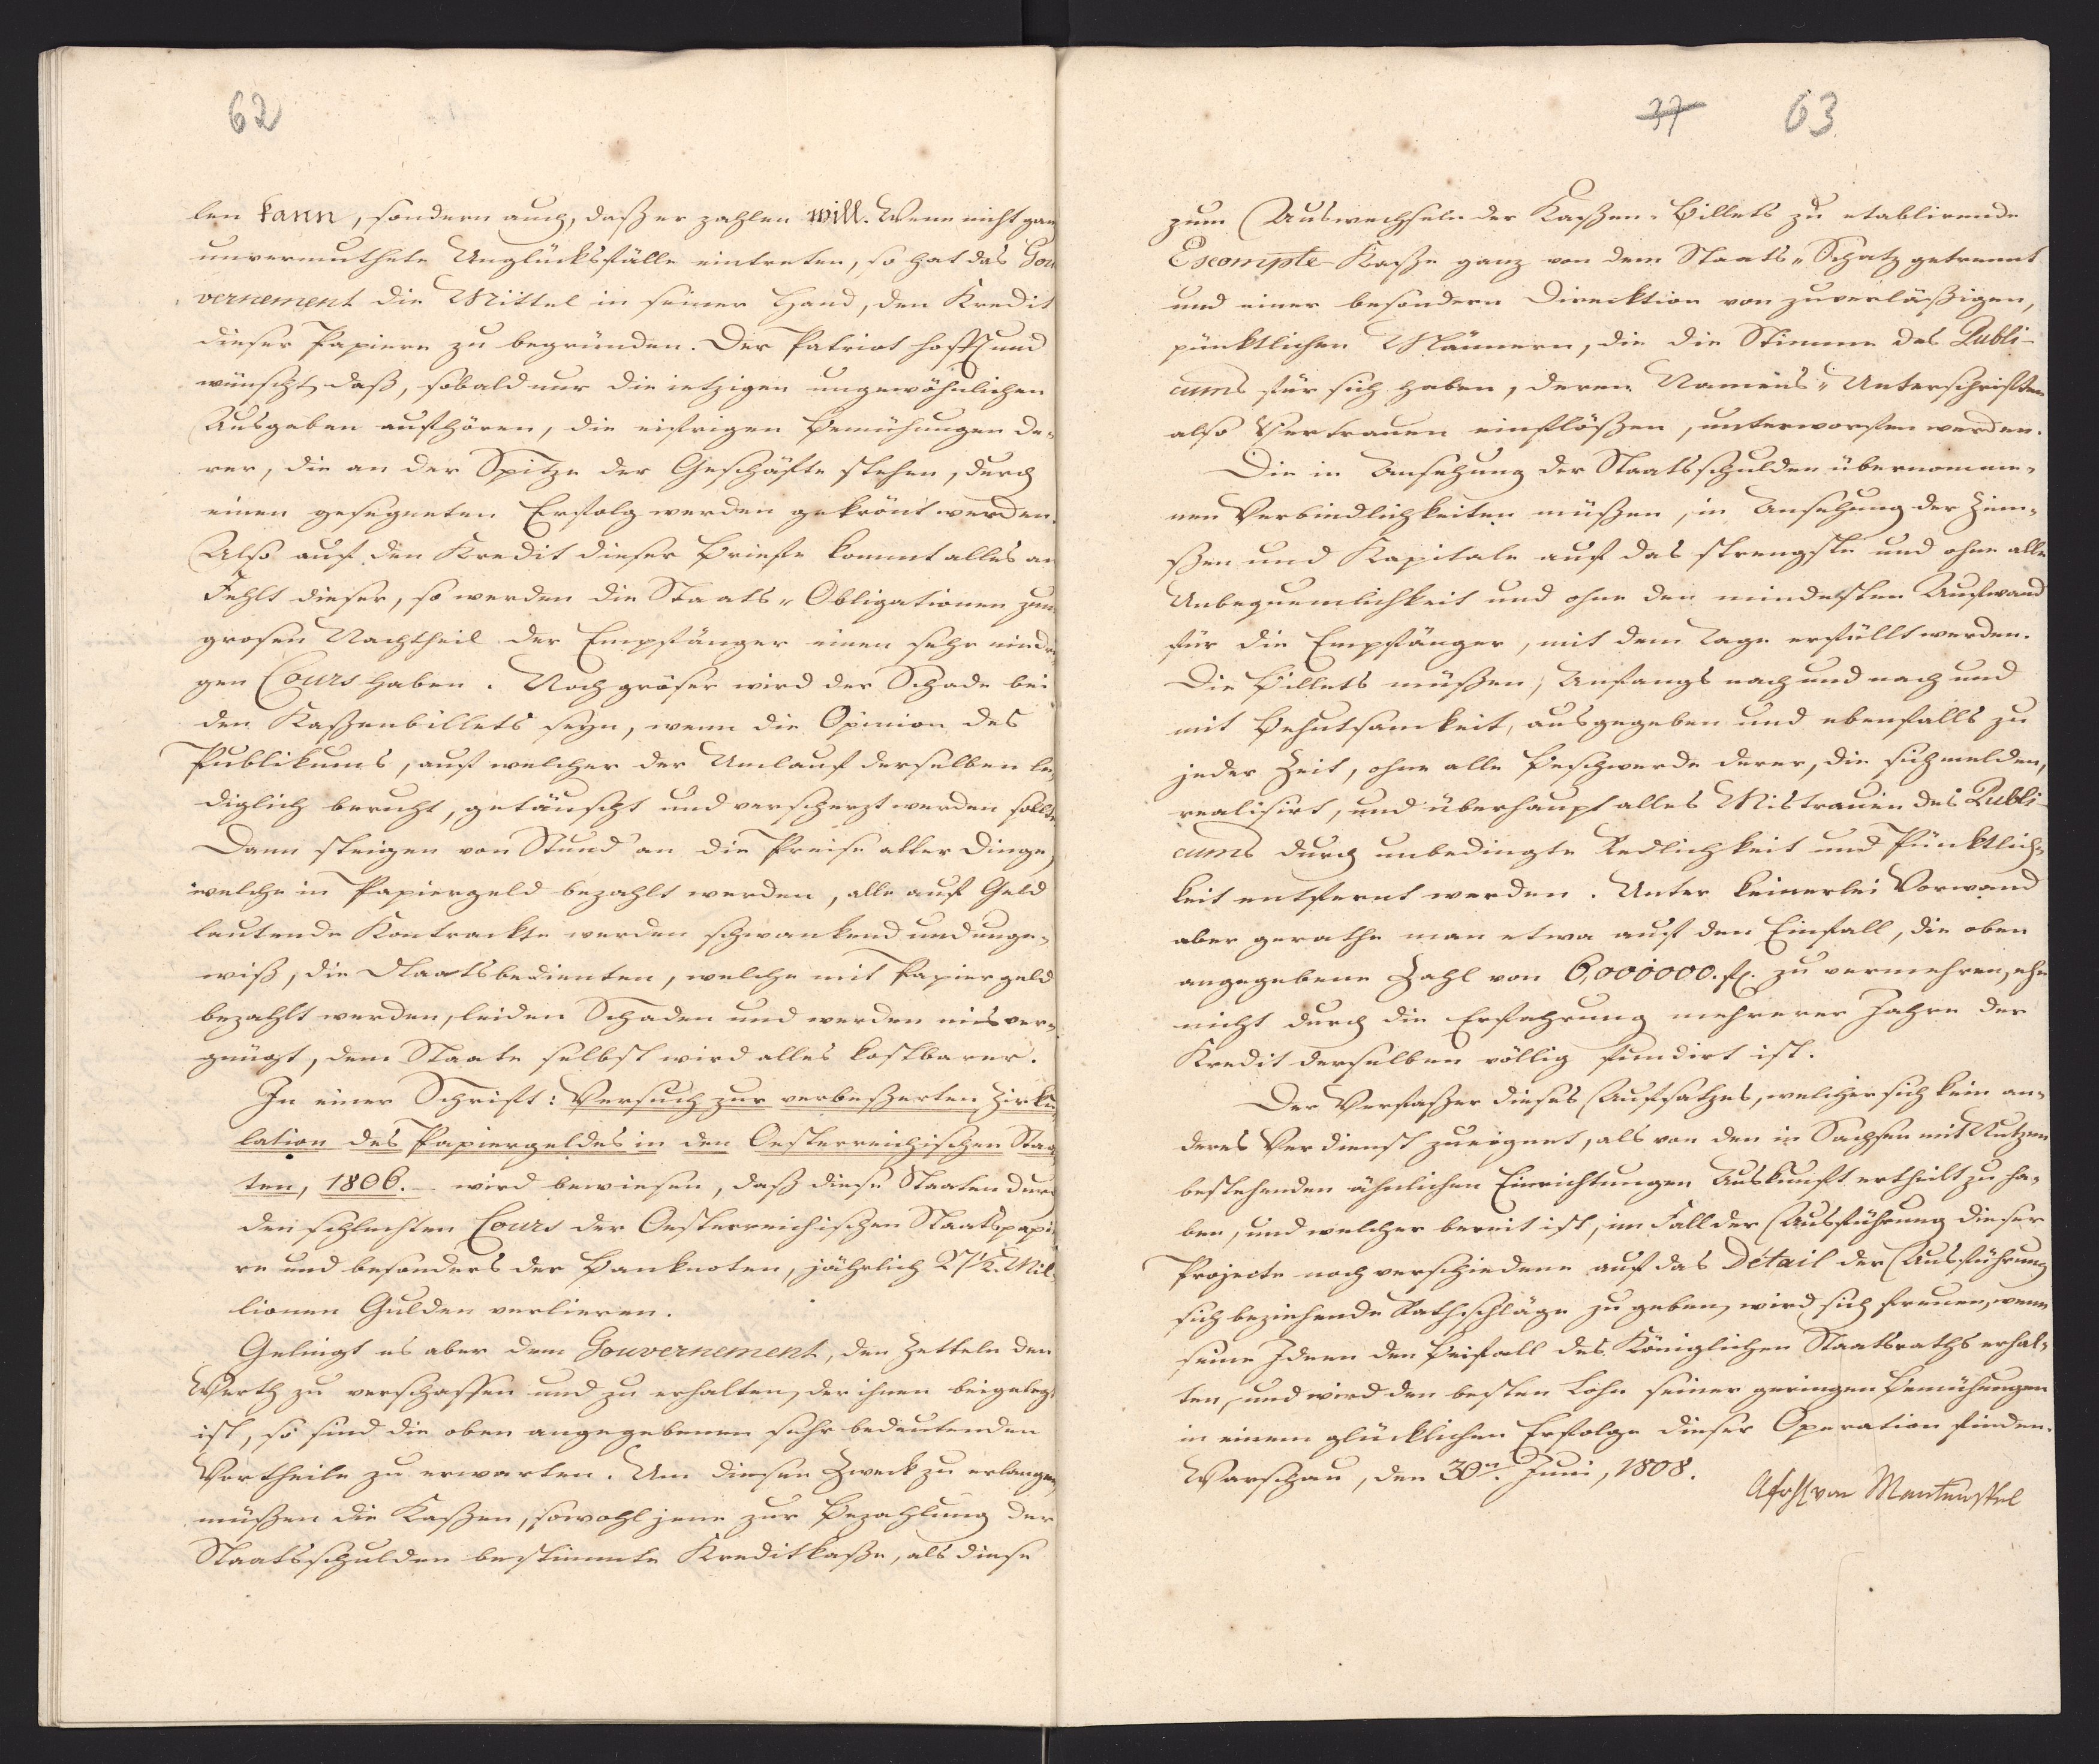 62
len kann, sondern auch, daß er zahlen will. Wenn nicht gan
unvermuthete Unglücksfälle eintreten, so hat das Gou
vernement die Mittel in seiner Hand, den Kredit
dieser Papiere zu begründen. Der Patriot hofft und
wünscht, daß, sobald nur die ietzigen ungewöhnlichen
Ausgaben aufhören, die eifrigen Bemühungen de-
rer, die an der Spitze der Geschäfte stehen, durch
einen gesegneten Erfolg werden gekrönt werden.
Also auf den Kredit dieser Briefe kommt alles an
Fehlt dieser, so werden die Staats-Obligationen zum
grosen Nachtheil der Empfänger einen sehr niedri
gen Cours haben. Noch gröser wird der Schade bei
den Kaßenbillets seyn, wenn die Opinion des
Publikums, auf welcher der Umlauf derselben le
diglich beruht, getäuscht und verscherzt werden sollte
Dann steigen von Stund an die Preise aller Dinge,
welche in Papiergeld bezahlt werden, alle auf Geld
lautende Kontrackte werden schwankend und unge-
wiß, die Staatsbedienten, welche mit Papiergeld
bezahlt werden, leiden Schaden und werden misver-
gnügt, dem Staate selbst wird alles kostbarer.
In einer Schrift: Versuch zur verbeßerten Zirku
lation des Papiergeldes in den Oesterreichischen Staa
ten, 1806. - wird bewiesen, daß diese Staaten durch
den schlechten Cours der Oesterreichischen Staatspapi
re und besonders der Banknoten, jährlich 27½. Mil-
lionen Gulden verlieren.
Gelingt es aber dem Gouvernement, den Zetteln den
Werth zu verschaffen und zu erhalten, der ihnen beigelegt
ist, so sind die oben angegebenen sehr bedeutenden
Vortheile zu erwarten. Um diesen Zweck zu erlangen,
müßen die Kaßen, sowohl jene zur Bezahlung der
Staatsschulden bestimmte Kreditkaße, als diese
37 63
zum Auswechseln der Kaßen-Billets zu etablirende
Escompte-Kaße ganz von dem Staats-Schatz getrennt
und einer besondern Direcktion von zuverläßigen,
pünktlichen Männern, die die Stimme des Publi-
cums für sich haben, deren Namens-Unterschriften
also Vertrauen einflößen, unterworfen werden.
Die in Ansehung der Staatsschulden übernomme-
nen Verbindlichkeiten müßen, in Ansehung der Zin-
ßen und Kapitale auf das strengste und ohne alle
Unbequemlichkeit und ohne den mindesten Aufwand
für die Empfänger, mit dem Tage erfüllt werden.
Die Billets müßen, Anfangs nach und nach und
mit Behutsamkeit, ausgegeben und ebenfalls zu
jeder Zeit, ohne alle Beschwerde derer, die sich melden,
realisirt, und überhaupt alles Mistrauen des Publi-
cums durch unbedingte Redlichkeit und Pünktlich-
keit entfernt werden. Unter keinerlei Vorwand
aber gerathe man etwa auf den Einfall, die oben
angegebene Zahl von 6,000000. fl. zu vermehren, ehe
nicht durch die Erfahrung mehrerer Jahre der
Kredit derselben völlig fundirt ist.
Der Verfaßer dieses Aufsatzes, welcher sich kein an-
deres Verdienst zueignet, als von den in Sachsen mit Nutzen
bestehenden ähnlichen Einrichtungen Auskunft ertheilt zu ha-
ben, und welcher bereit ist, im Fall der Ausführung dieser
Projecte noch verschiedene auf das Détail der Ausführung
sich beziehende Rathschläge zu geben, wird sich freuen, wenn
seine Ideen den Beifall des Königlichen Staatsraths erhal-
ten, und wird den besten Lohn seiner geringen Bemühungen
in einem glücklichen Erfolge dieser Operation finden.
Warschau, den 30n. Juni, 1808.
von